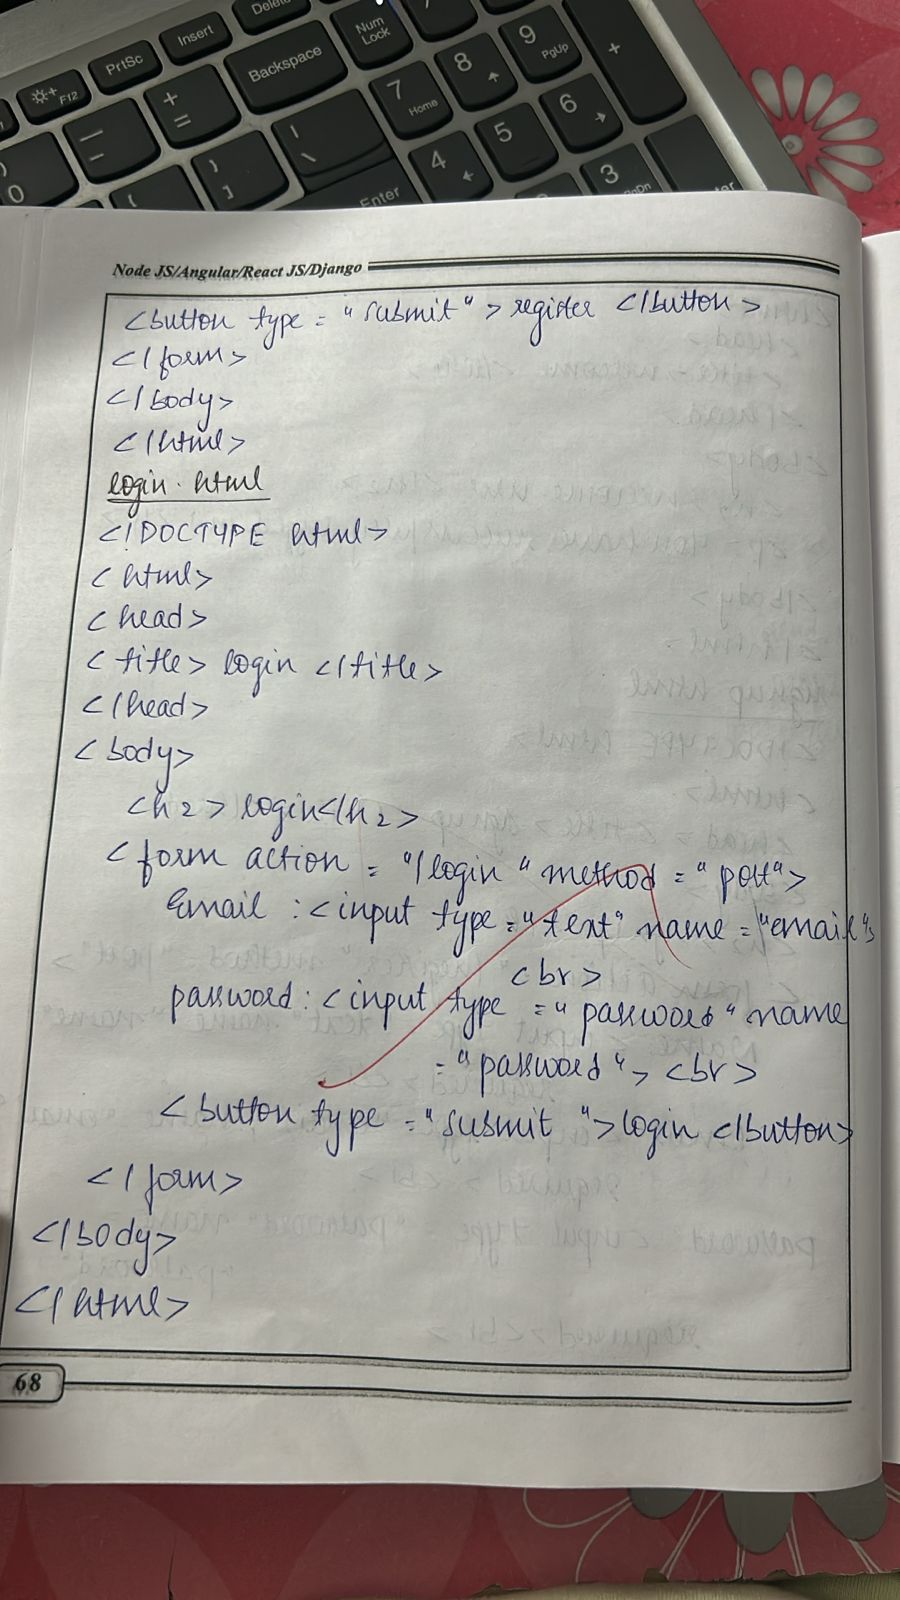 Delete
Insert
PrtSc
F12
Num
Lock
Backspace
+
=
7
Home
8
9
PgUp
+
4
5
6
3
Enter
0
Node JS/Angular/React JS/Django
<button type = "submit" > register </button >
</form>
</body>
</html>
login.html
<!DOCTYPE html>
<html>
<head>
<title> login </title>
</head>
<body>
<h2> login</h2>
<form action = "/login" method = "post">
Email : <input type = "text" name = "email">
<br>
password : <input type = "password" name
= "password"> <br>
<button type = "submit" >login </button>
</form>
</body>
</html>
68